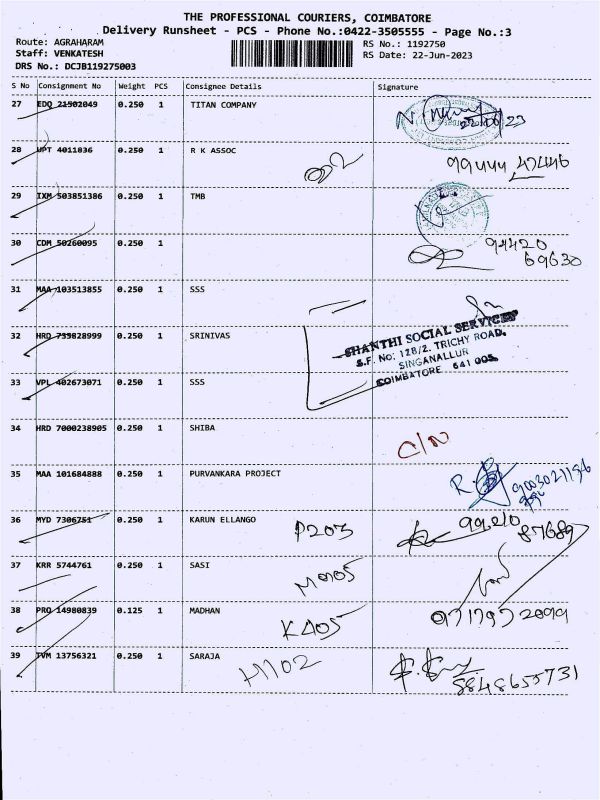 THE PROFESSIONAL COURIERS, COIMBATORE
Delivery Runsheet - PCS - Phone No.:0422-3505555 - Page No.:3
Route: AGRAHARAM
Staff: VENKATESH
DRS No.: DCJB119275003
RS No.: 1192750
RS Date: 22-Jun-2023
S No Consignment No Weight PCS Consignee Details Signature
27 EDQ 21502049 0.250 1 TITAN COMPANY
28 UPT 4011836 0.250 1 R K ASSOC
29 IXM 503851386 0.250 1 TMB
30 CDM 50260095 0.250 1 94420
69630
31 MAA 103513855 0.250 1 SSS
32 HRD 735828999 0.250 1 SRINIVAS
SHANTHI SOCIAL SERVICES
S.F. No: 128/2, TRICHY ROAD,
SINGANALLUR
COIMBATORE 641 005.
33 VPL 402673071 0.250 1 SSS
34 HRD 7000238905 0.250 1 SHIBA C/N
35 MAA 101684888 0.250 1 PURVANKARA PROJECT
36 MYD 7306751 0.250 1 KARUN ELLANGO P203 99210
87689
37 KRR 5744761 0.250 1 SASI M0905
38 PRO 14980839 0.125 1 MADHAN KA05
39 TVM 13756321 0.250 1 SARAJA H1102 8848655731